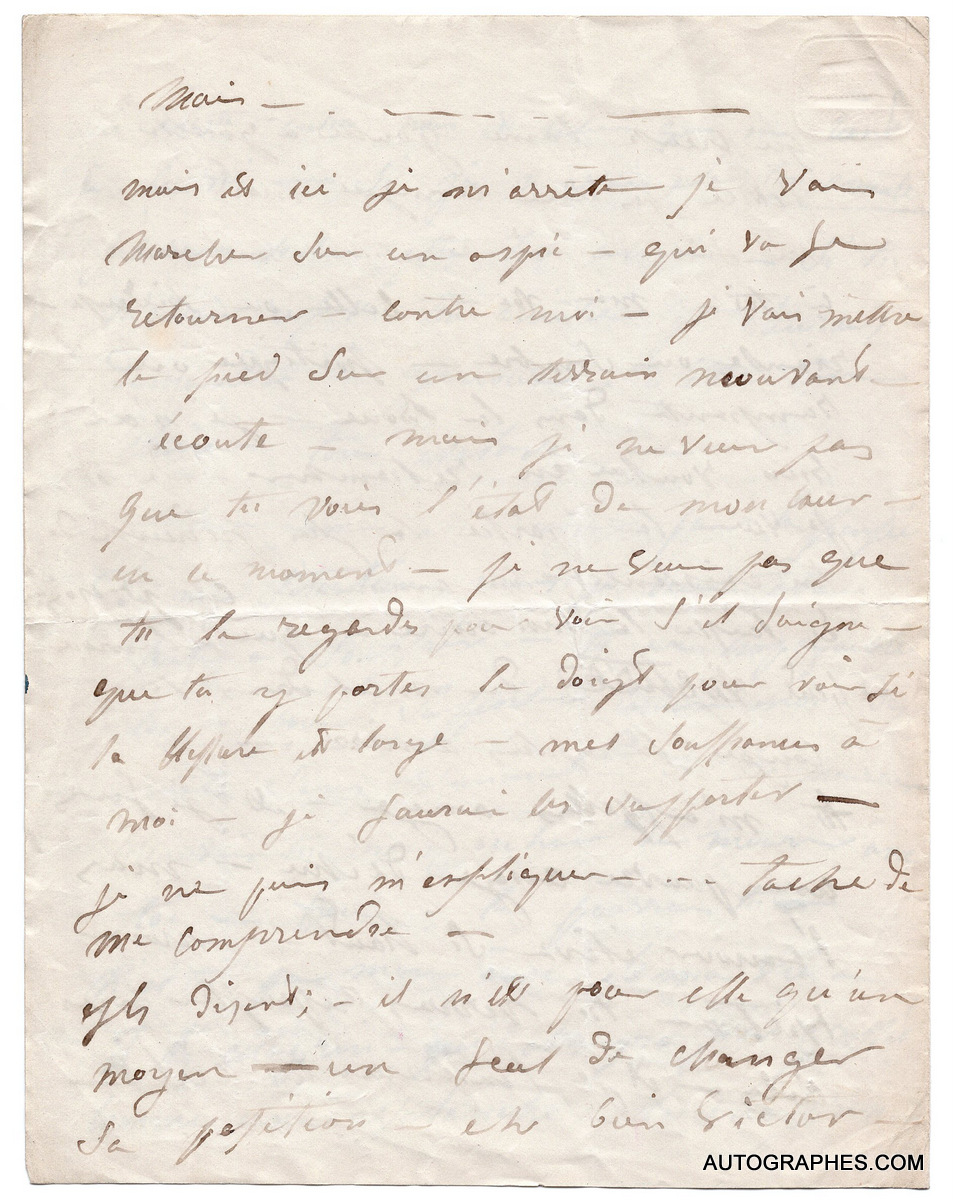 Mais — . — — — ———
mais est ici je m'arrête je vais
Marcher sur un aspic — qui va se
retourner — contre moi — je vais mettre
le pied sur un terrain mouvant —
écoute — mais je ne veux pas
que tu voies l'état de mon cœur —
en ce moment — je ne veux pas que
tu le regardes pour voir s'il saigne —
que tu y portes le doigt pour voir si
la blessure est large — mes souffrances à
moi — je saurai les supporter —
je ne puis m'expliquer — . . . tache de
me comprendre —
ils disent; — il n'est pour elle qu'un
moyen — un seul de changer
sa position — eh bien Victor —
AUTOGRAPHES.COM